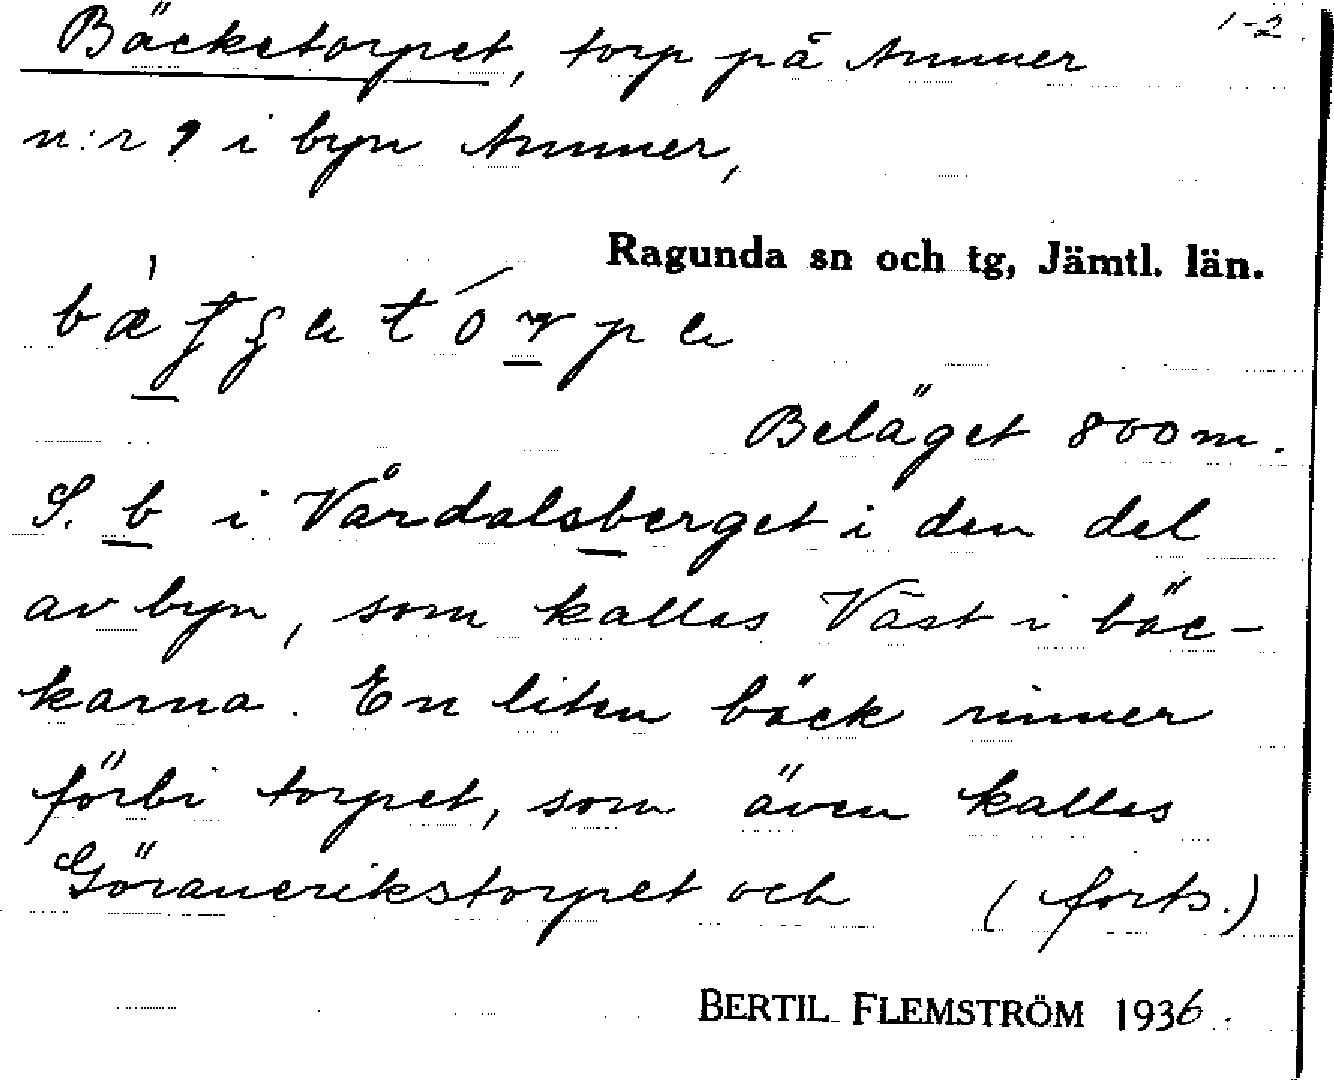 1-2
Bäcketorpet, torp på Ammer
n:r 9 i byn Ammer,
Ragunda sn och tg, Jämtl. län.
Beläget 800 m.
S. b i Vårdalsberget i den del
av byn, som kallas Väst i bäc-
karna. En liten bäck rinner
förbi torpet, som även kallas
Göranerikstorpet och (forts.)
BERTIL FLEMSTRÖM 1936